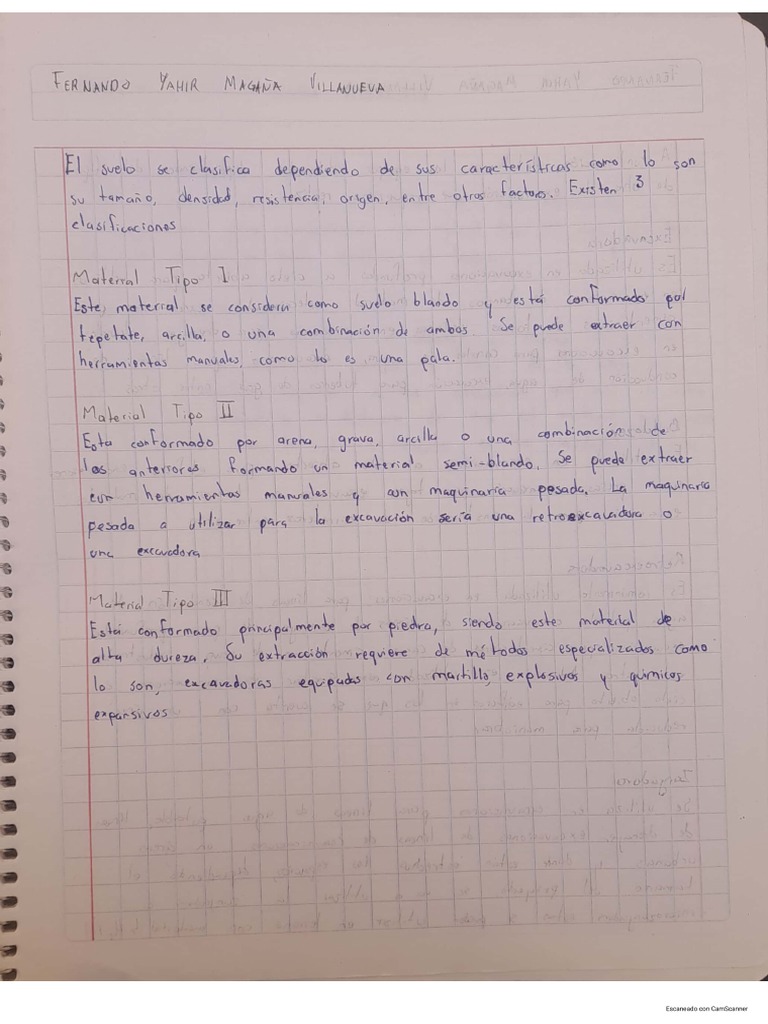 FERNANDO YAHIR MAGAÑA VILLANUEVA
El suelo se clasifica dependiendo de sus características como lo son
su tamaño, densidad, resistencia, origen, entre otros factores. Existen 3
clasificaciones
Material Tipo I
Este material se considera como suelo blando y está conformado por
tepetate, arcilla, o una combinación de ambos. Se puede extraer con
herramientas manuales, como lo es una pala.
Material Tipo II
Esta conformado por arena, grava, arcilla o una combinación de
los anteriores formando un material semi-blando. Se puede extraer
con herramientas manuales y con maquinaria pesada. La maquinaria
pesada a utilizar para la excavación sería una retroexcavadora o
una excavadora
Material Tipo III
Está conformado principalmente por piedra, siendo este material de
alta dureza. Su extracción requiere de métodos especializados como
lo son, excavadoras equipadas con martillo, explosivos y quimicos
expansivos
Escaneado con CamScanner